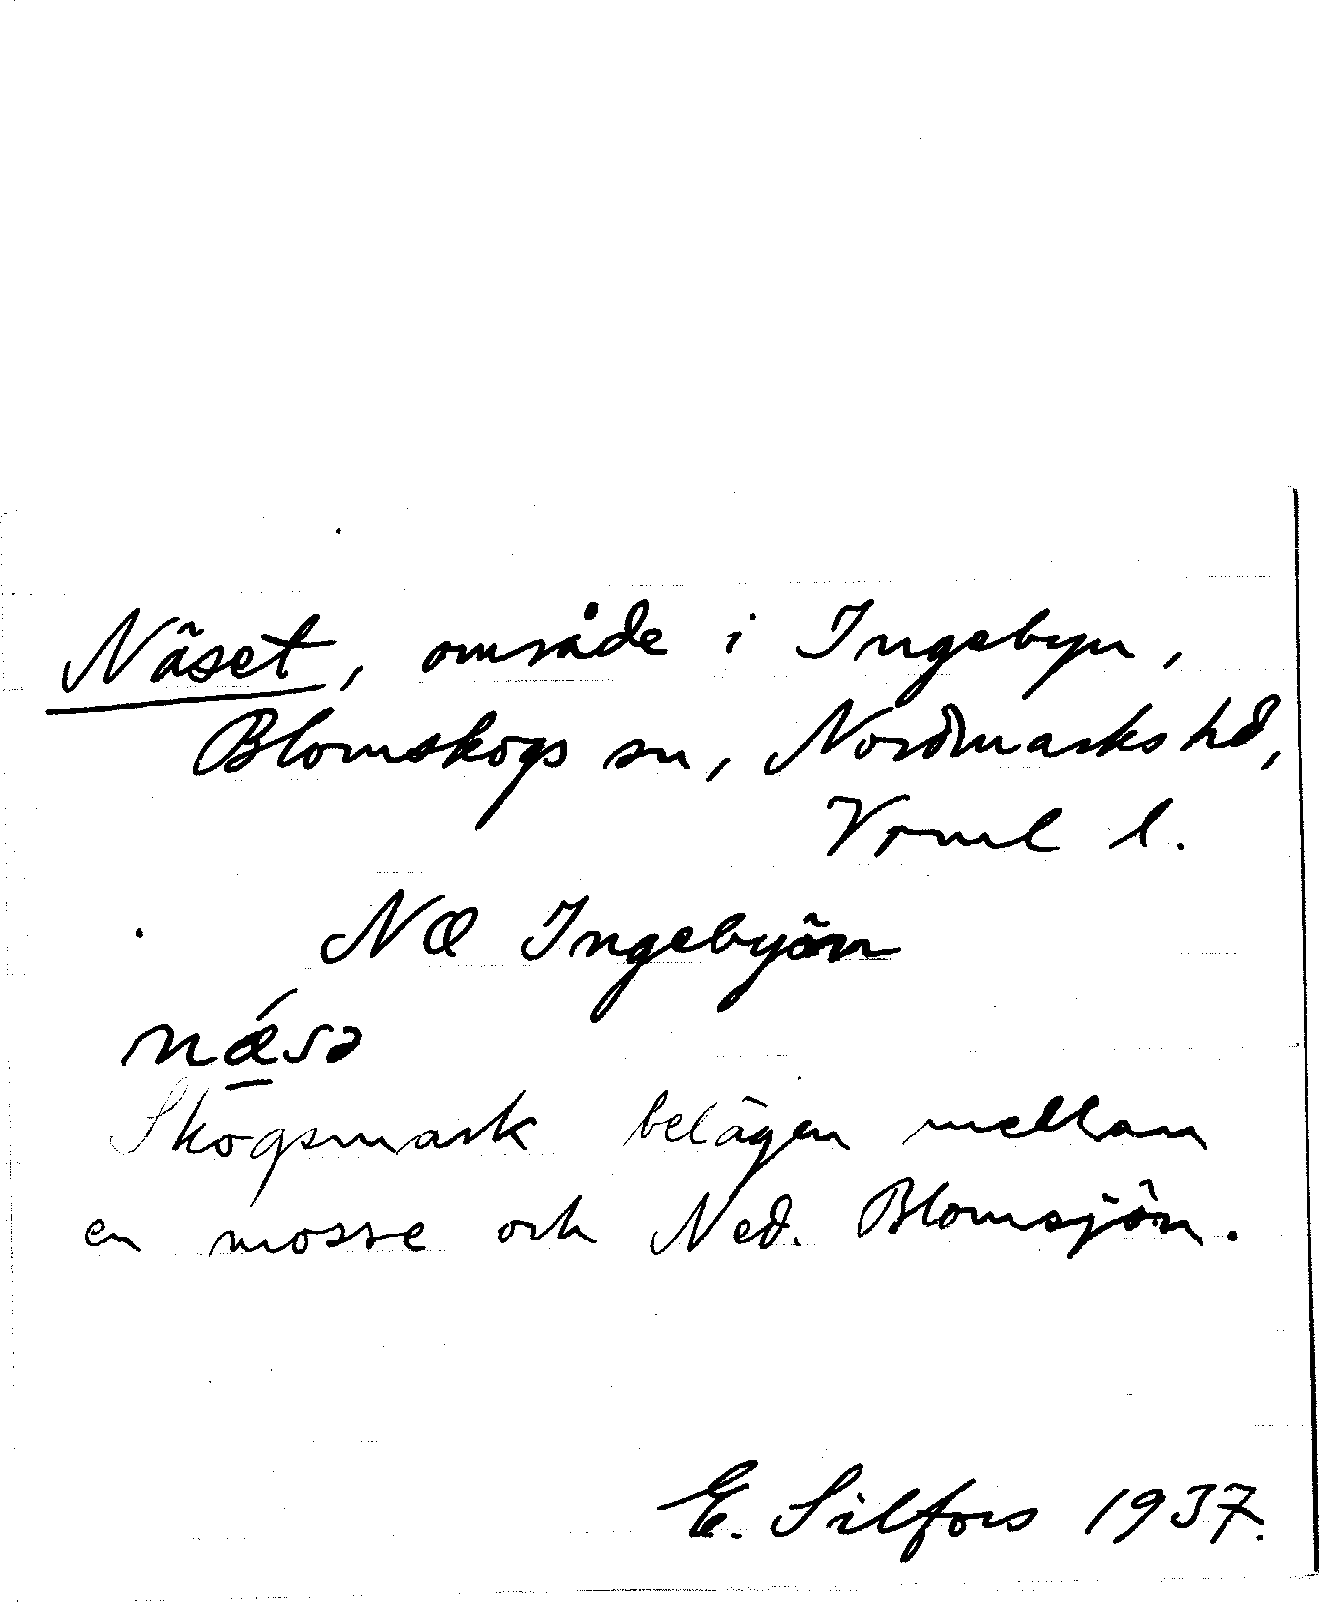 Näset, område i Ingebyn,
Blomskogs sn, Nordmarks hd,
Vrml l.
NO Ingebyån
nǽ̱sə
Skogsmark belägen mellan
en mosse och Ned. Blomsjön.
E. Silfors 1937.